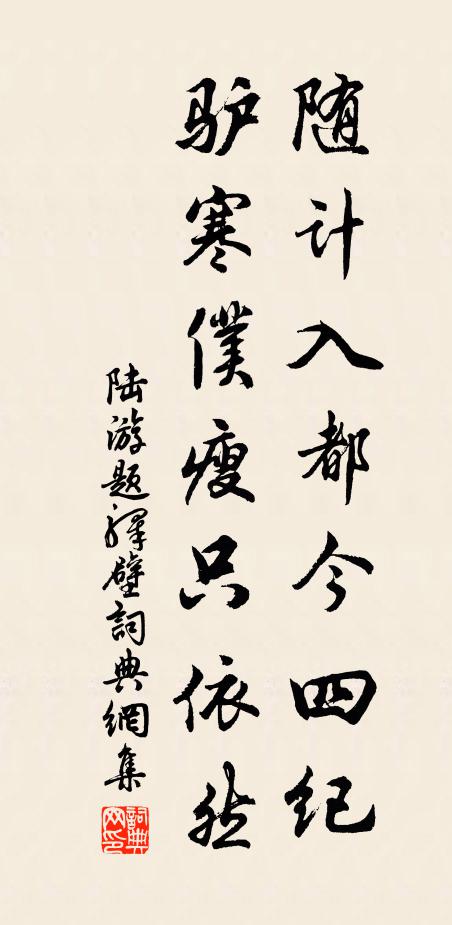 随计入都今四纪
驴寒僕瘦只依然
陆游题驿壁詞典網集
詞典網印